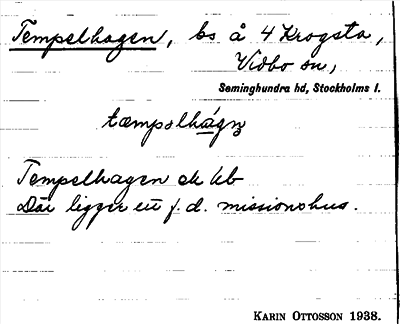 Tempelhagen, bs å 4 Krogsta,
Vidbo sn,
Seminghundra hd, Stockholms l.
tæmpəlhágṇ
Tempelhagen ek kb
Där ligger ett f. d. missionshus.
KARIN OTTOSSON 1938.